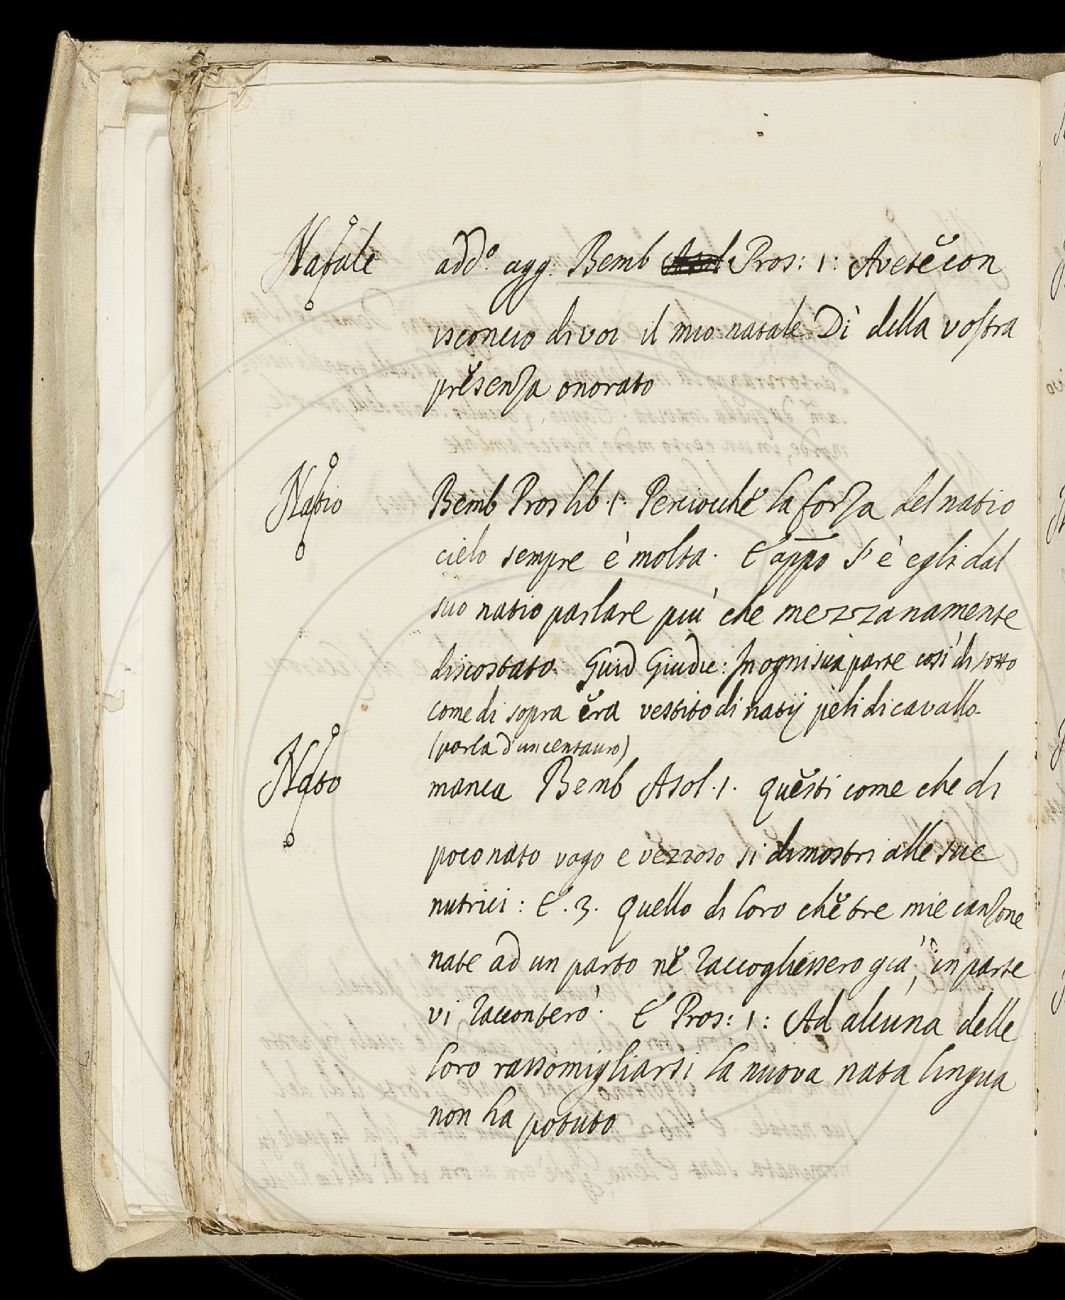 Natale add.º agg. Bemb Asol. Pros: 1: Avete con
isconcio di voi il mio natale Dì della vostra
presenza onorato
Natio Bemb Pros lib. 1. Perciocchè la forza del natio
cielo sempre è molta. E appo S'è egli dal
suo natio parlare più che mezzanamente
discostato. Guid Giudic: In ogni sua parte così di sotto
come di sopra era vestito di natij peli di cavallo
(parla d'un centauro)
Nato manca Bemb Asol. 1. questi come che di
poco nato vago e vezzoso si dimostri alle sue
nutrici: E. 3. quello di loro che tre mie canzone
nate ad un parto ne raccogliessero già, in parte
vi racconterò. E Pros: 1: Ad alcuna delle
loro rassomigliarsi la nuova nata lingua
non ha potuto